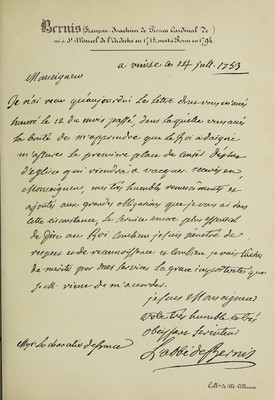 Bernis (François-Joachim de Pierres Cardinal de)
né à St Marcel de l'Ardèche en 1715, mort à Rome en 1794.
a venise ce 24 juill. 1753
Monseigneur
Je n'ai recu qu'aujourdhui la lettre dont vous m'avés
honoré le 12 du mois passé, dans laquelle vous avés
la bonté de m'apprendre que le Roi a daigné
m'assurer la premiere place de Conseiller d'Etat
d'eglise qui viendra a vacquer. recevés en
Monseigneur, mes très humbles remerciments et
ajoutés aux grandes obligations que je vous ai dans
cette circonstance, le service encore plus essentiel
de dire au Roi combien je suis penetré de
respect et de reconnoissance et combien je vais tacher
de meriter par mes services la grace importante que
S. M. vient de m'accorder.
je suis Monseigneur
votre très humble et très
obeissant serviteur
L'abbé de Bernis
Mgr. le chancelier de france